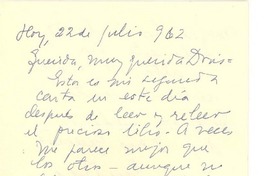 Hoy, 22 de julio 962
Querida, muy querida Doris =
Esta es mi segunda
carta en este día
después de leer y releer
el precioso libro - A veces
me parece mejor que
los otros - aunque no